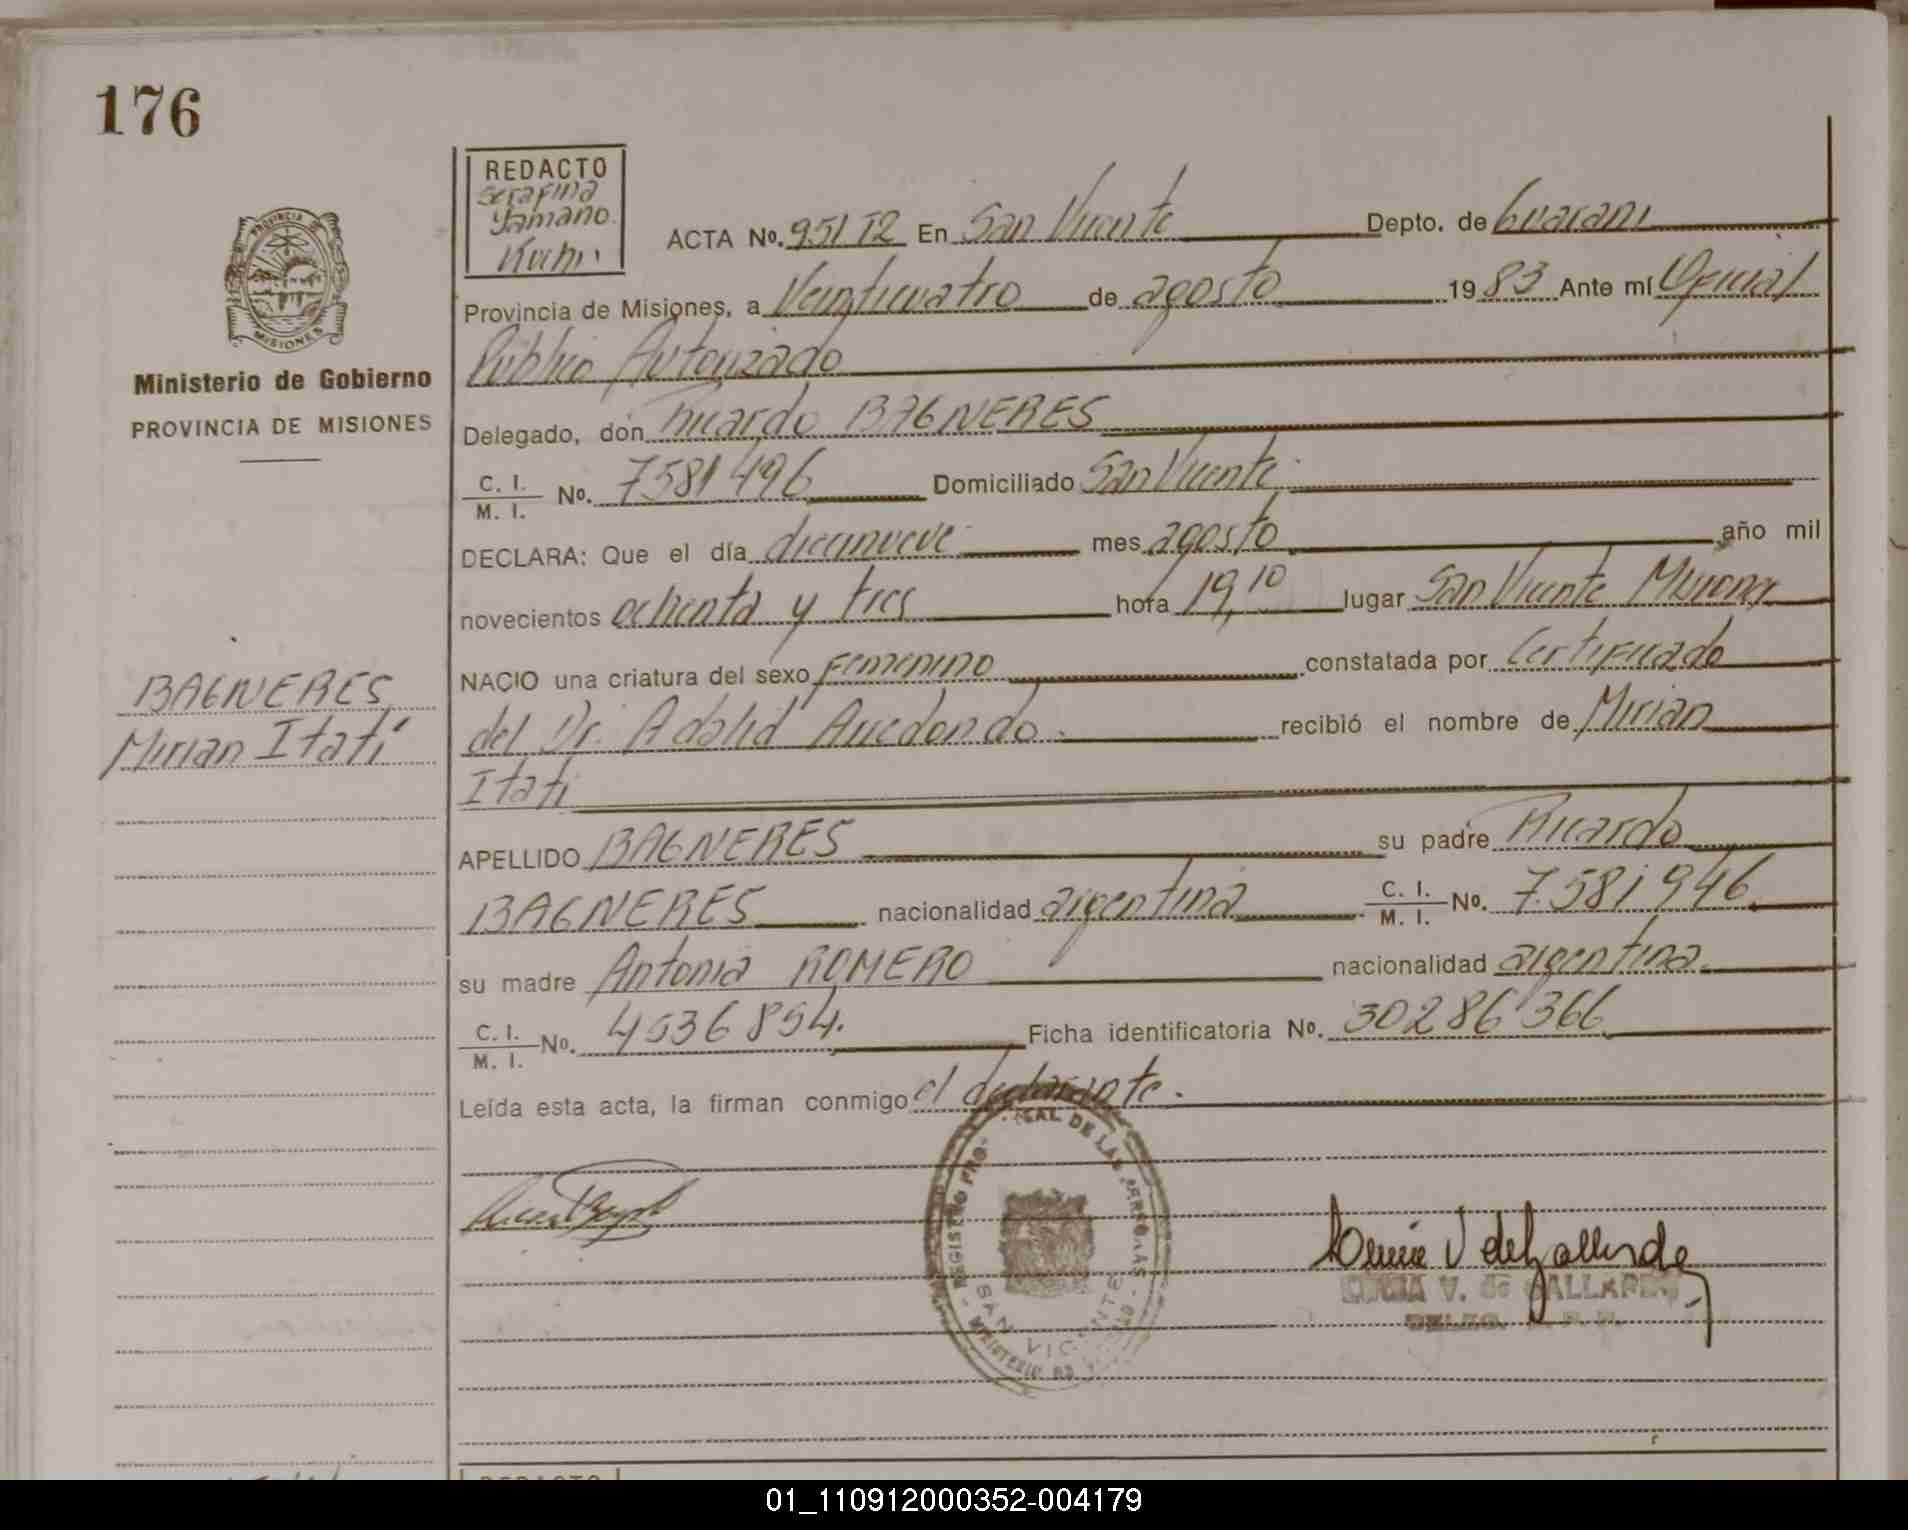 176
REDACTO
Serafina
Yamano
Kuchi.
ACTA No. 951 T2 En San Vicente Depto. de Guarani
Provincia de Misiones, a Veinticuatro de agosto 1983 Ante mí Oficial
Publico Autorizado
PROVINCIA DE
MISIONES
Ministerio de Gobierno
PROVINCIA DE MISIONES
Delegado, don Ricardo BAGNERES
C. I.
M. I. No. 7581496 Domiciliado San Vicente
DECLARA: Que el día diecinueve mes agosto año mil
novecientos ochenta y tres hora 19,10 lugar San Vicente Misiones
NACIO una criatura del sexo Femenino constatada por Certificado
BAGNERES
Mirian Itatí
del Dr. Adalid Arredondo. recibió el nombre de Mirian
Itati
APELLIDO BAGNERES su padre Ricardo
BAGNERES nacionalidad argentina C. I. M. I. No. 7.581946
su madre Antonia ROMERO nacionalidad argentina
C. I.
M. I. No. 4536854. Ficha identificatoria No. 30286366
Leída esta acta, la firman conmigo el declarante.
REGISTRO DE LAS PERSONAS
SAN VICENTE
V de Gallardo
V. de GALLARDO
REDACTO
01_110912000352-004179